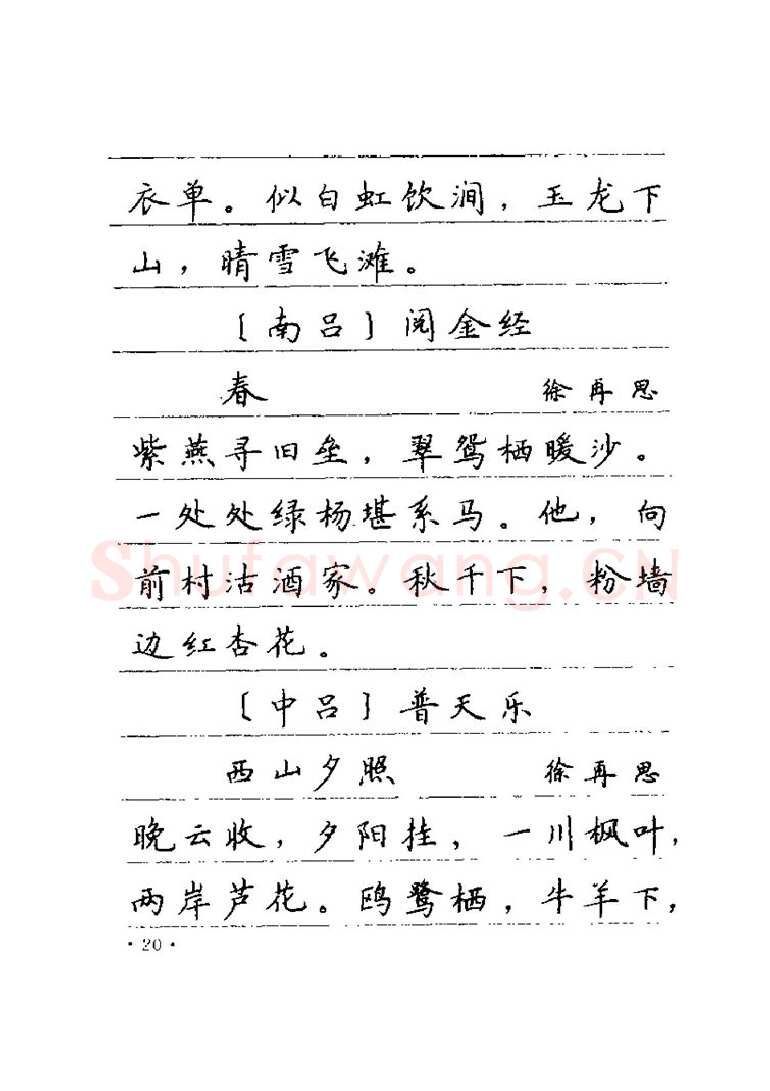 衣单。似白虹饮涧，玉龙下
山，晴雪飞滩。
〔南吕〕阅金经
春　徐再思
紫燕寻旧垒，翠鸳栖暖沙。
一处处绿杨堪系马。他，向
前村沽酒家。秋千下，粉墙
边红杏花。
〔中吕〕普天乐
西山夕照　徐再思
晚云收，夕阳挂，一川枫叶，
两岸芦花。鸥鹭栖，牛羊下，
·20·
Shufawang.CN